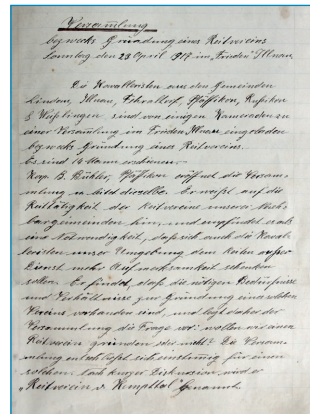 Versammlung
bezwecks Gründung eines Reitvereins
Sonntag den 28 April 1917 im "Frieden" Illnau.
Die Kavalleristen aus den Gemeinden
Lindau, Illnau, Fehraltorf, Pfäffikon, Russikon
& Weisslingen sind von einigen Kameraden zu
einer Versammlung im Frieden Illnau eingeladen
bezwecks Gründung eines Reitvereins.
Es sind 16 Mann erschienen.
Korp. B. Bühler, Pfäffikon eröffnet die Versam-
mlung u. leitet dieselbe. Er weist auf die
Tätigkeit der Reitvereine unserer Nach-
bargemeinden hin, und empfindet es als
eine Notwendigkeit, dass sich auch die Kaval-
leristen unser Umgebung dem Reiten ausser
Dienst mehr Aufmerksamkeit schenken
sollen. Er findet, dass die nötigen Bedürfnisse
und Verhältnisse zur Gründung eines solchen
Vereins vorhanden sind, und legt daher der
Versammlung die Frage vor: wollen wir einen
Reitverein gründen oder nicht? Die Versam-
mlung entschliesst sich einstimmig für einen
solchen. Nach kurzer Diskussion wird er
"Reitverein v. Kempttal" genannt.